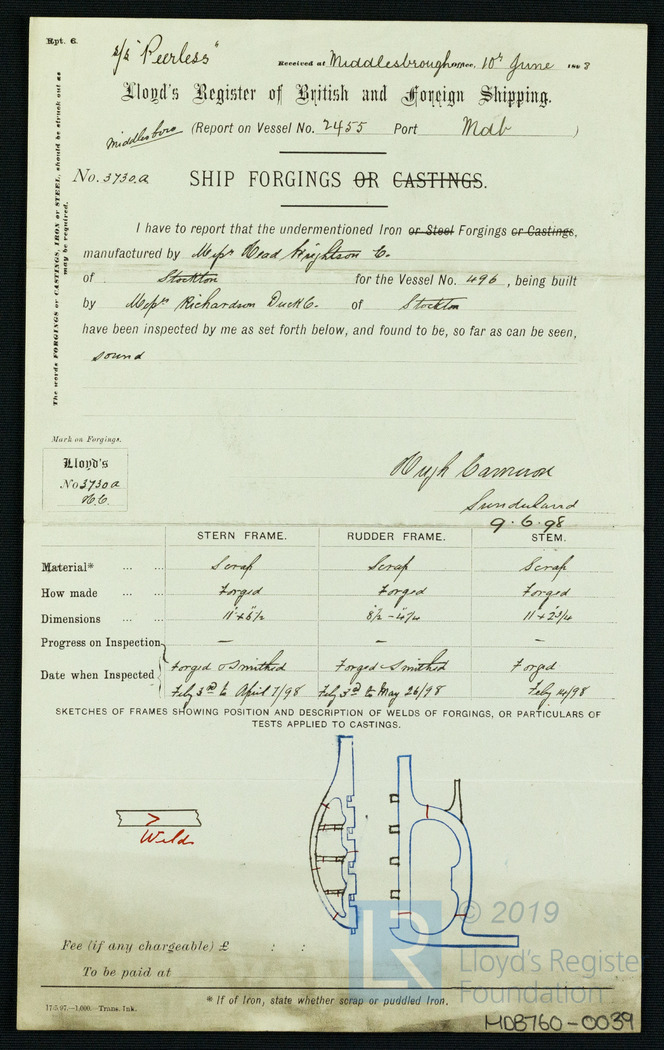 Rpt. 6.
s/s "Peerless"
Received at Middlesbrough Office, 10th June 1898
Lloyd's Register of British and Foreign Shipping.
Middlesbro (Report on Vessel No. 2455 Port Mdb )
No. 3730.a SHIP FORGINGS OR CASTINGS.
The words FORGINGS or CASTINGS, IRON or STEEL, should be struck out as may be required.
I have to report that the undermentioned Iron or Steel Forgings or Castings,
manufactured by Messrs Head Wrightson Co.
of Stockton for the Vessel No. 496, being built
by Messrs Richardson Duck Co. of Stockton
have been inspected by me as set forth below, and found to be, so far as can be seen,
sound
Mark on Forgings.
Lloyd's
No 3730a
H.C.
Hugh Cameron
Sunderland
9.6.98
STERN FRAME. RUDDER FRAME. STEM.
Material* ... ... Scrap Scrap Scrap
How made ... ... Forged Forged Forged
Dimensions ... ... 11" x 6½ 8½ - 4¾ 11" x 2¾
Progress on Inspection — — —
Date when Inspected Forged & Smithed Forged & Smithed Forged
Feby 3rd to April 7/98 Feby 3rd to May 26/98 Feby 14/98
SKETCHES OF FRAMES SHOWING POSITION AND DESCRIPTION OF WELDS OF FORGINGS, OR PARTICULARS OF
TESTS APPLIED TO CASTINGS.
Welds
Fee (if any chargeable) £ : :
To be paid at
* If of Iron, state whether scrap or puddled Iron.
17:5:97.—1,000.—Trans. Ink.
LR
© 2019
Lloyd's Register
Foundation
MDB760-0039